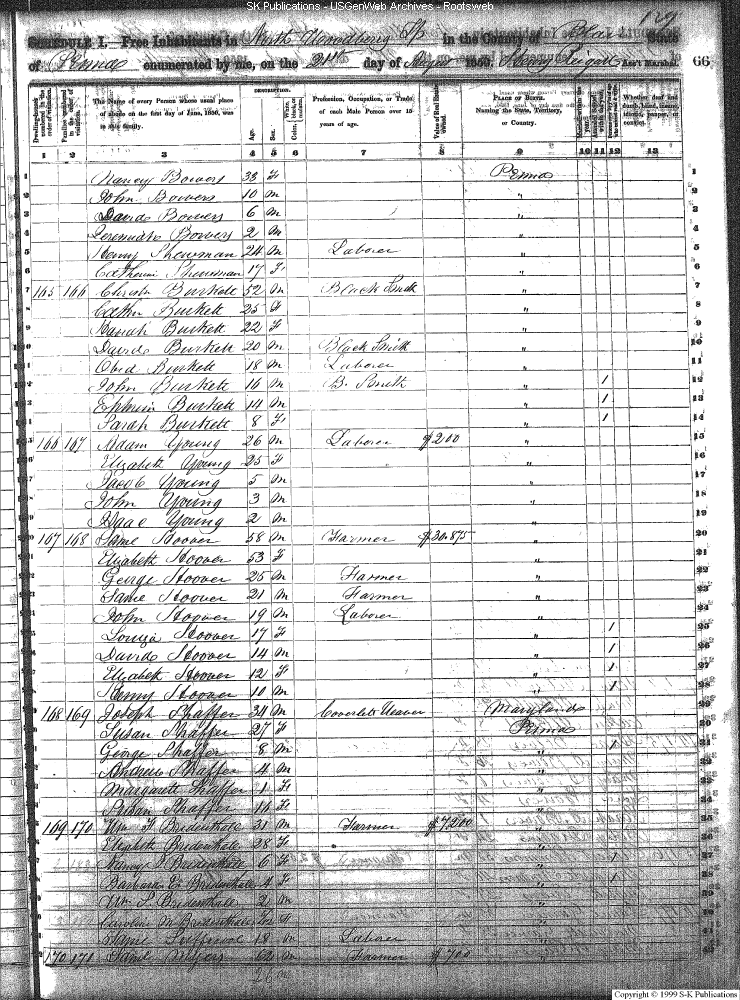 SK Publications - USGenWeb Archives - Rootsweb
129
SCHEDULE I.—Free Inhabitants in North Woodberry Tp in the County of Blair State
of Penna enumerated by me, on the 21st day of August 1850. Ass't Marshal. 66
DESCRIPTION.
Dwelling-houses numbered in the order of visitation.
Families numbered in the order of visitation.
The Name of every Person whose usual place of abode on the first day of June, 1850, was in this family.
Age.
Sex.
Profession, Occupation, or Trade of each Male Person over 15 years of age.
Value of Real Estate owned.
PLACE OF BIRTH. Naming the State, Territory, or Country.
Whether deaf and dumb, blind, insane, idiotic, pauper, or convict.
1 2 3 4 5 6 7 8 9 10 11 12 13
1 Nancy Bowers 33 F Penna 1
2 John Bowers 10 M " 2
3 David Bowers 6 M " 3
4 Jeremiah Bowers 2 M " 4
5 Henry Shewman 24 M Laborer " 5
6 Catherine Shewman 17 F " 6
7 165 166 Christn Burkett 52 M Black Smith " 7
8 Cathn Burkett 25 F " 8
9 Hanah Burkett 22 F " 9
10 David Burkett 20 M Black Smith " 10
Obed Burkett 18 M Laborer " 11
John Burkett 16 M B. Smith " 1 12
Ephrim Burkett 14 M " 1 13
Sarah Burkett 8 F " 1 14
166 167 Adam Young 26 M Laborer $200 " 15
Elizabeth Young 25 F " 16
Jacob Young 5 M " 17
John Young 3 M " 18
Isaac Young 2 M " 19
167 168 Hoover 58 M Farmer $30.875 " 20
Elizabeth Hoover 53 F " 21
George Hoover 25 M Farmer " 22
Hoover 21 M Farmer " 23
John Hoover 19 M Laborer " 24
Louiza Hoover 17 F " 1 25
David Hoover 14 M " 1 26
Elizabeth Hoover 12 F " 1 27
Henry Hoover 10 M " 1 28
168 169 Joseph Shaffer 34 M Coverlet Weaver Maryland 29
Susan Shaffer 27 F Penna 30
George Shaffer 8 M " 1 31
Andrew Shaffer 4 M " 32
Margarett Shaffer 1 F " 33
Susan Shaffer 14 F " 34
169 170 Wm F Bredenthale 31 M Farmer $7200 " 35
Elizabeth Bredenthale 28 F " 36
Nancy Bredenthale 6 F " 1 37
Barbara E Bredenthale 4 F " 1 38
Wm S Bredenthale 2 M " 39
Caroline M Bredenthale F " 40
18 M Laborer " 41
170 171 Myers 62 M Farmer $700 " 42
Copyright © 1999 S-K Publications